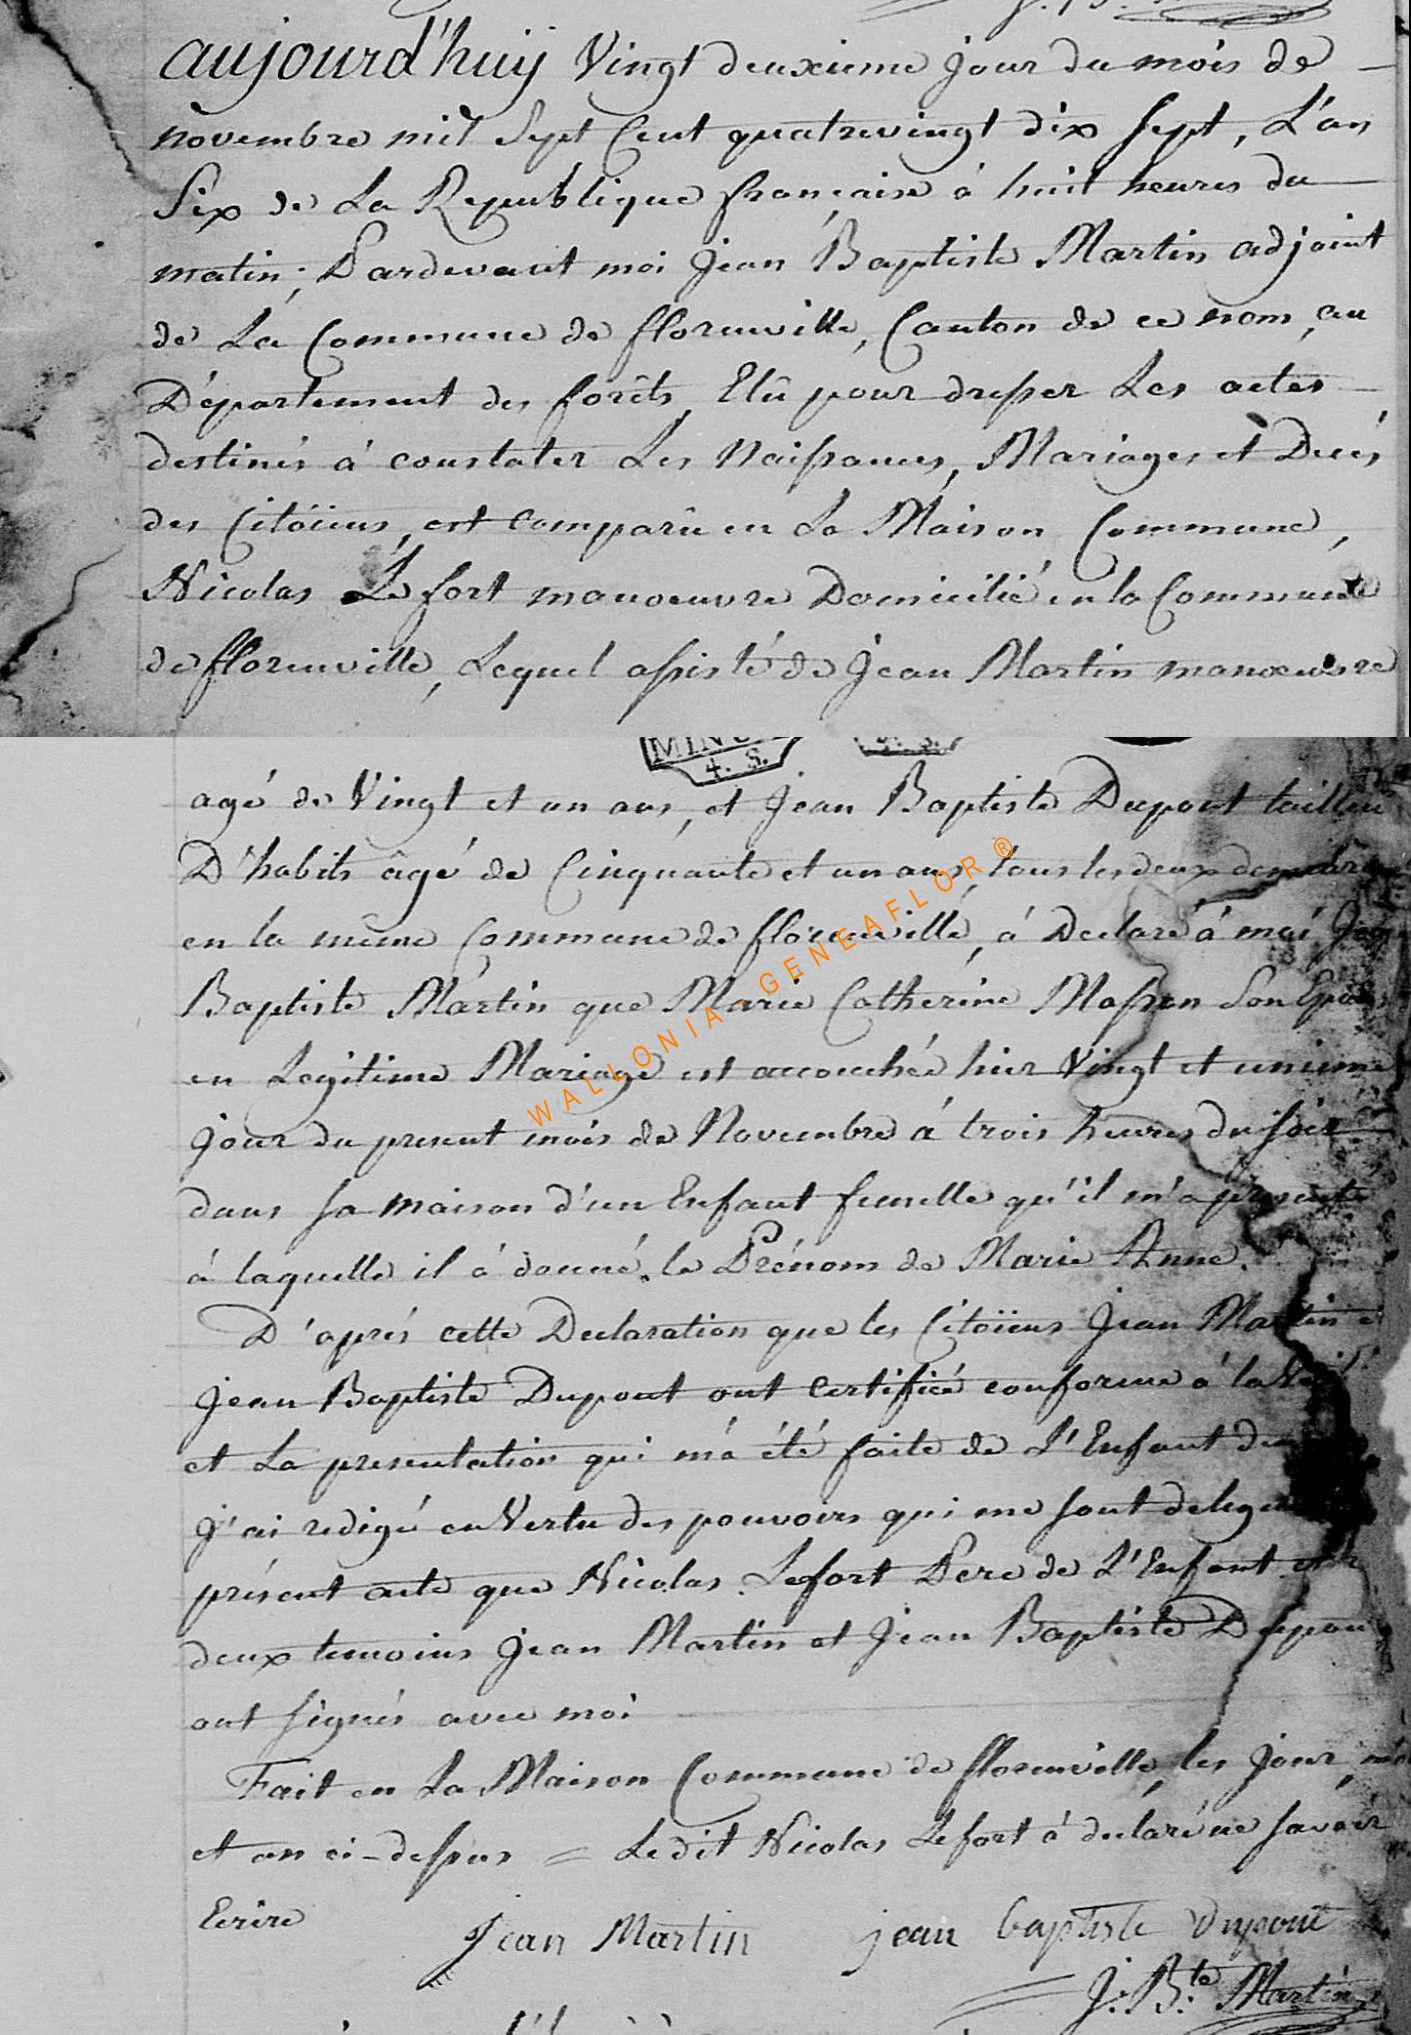 aujourd'huy Vingt deuxieme jour du mois de
novembre mil Sept Cent quatrevingt dix sept, L'an
Six de La Republique française à huit heures du
matin; Pardevant moi Jean Baptiste Martin adjoint
de La Commune de florenville, Canton de ce nom, au
Département des forêts, Elû pour dresser Les actes
destinés à constater Les Naissances, Mariages et Decés
des Citoïens, est comparû en La Maison Commune,
Nicolas Le fort manoeuvre Domicilié en la Commune
de florenville, Lequel assisté de Jean Martin manoeuvre
MIN
4. S.
agé de Vingt et un ans, et Jean Baptiste Dupont tailleur
D'habits âgé de Cinquante et un ans, tous les deux
en la même Commune de florenville, à Declaré à moi Jean
Baptiste Martin que Marie Catherine Masson Son Epouse
en Legitime Mariage est accouchée hier Vingt et unieme
jour du present mois de Novembre à trois heures du soir
dans sa maison d'un Enfant femelle qu'il m'a presenté
à laquelle il à donné le Prénom de Marie Anne.
D'aprés cette Declaration que les Citoïens Jean Martin et
Jean Baptiste Dupont ont certifiée conforme à la
et La presentation qui m'à été faite de L'Enfant
J'ai redigé en Vertu des pouvoirs qui me sont
présent acte que Nicolas Lefort Pere de L'Enfant et
deux temoins Jean Martin et Jean Baptiste Dupont
ont signés avec moi
Fait en La Maison Commune de florenville, les jour, mois
et an ci-dessus = Le dit Nicolas Lefort à declaré ne savoir
Ecrire
Jean Martin jean baptiste dupont
J: B.te Martin
WALLONIA - GENEAFLOR ®